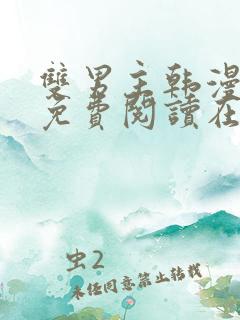 雙男主韩漫
免費閱讀在
虫2
未经同意禁止转载